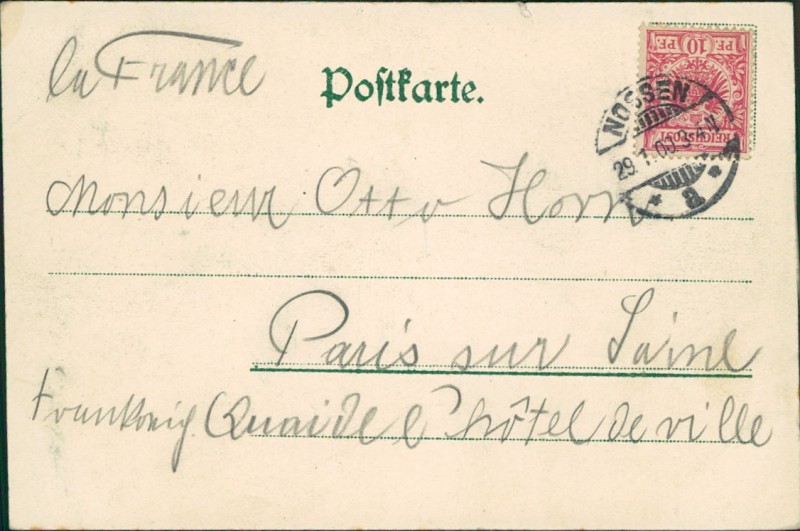 la France
Postkarte.
10 PF. 10 PF.
REICHSPOST
NOSSEN
29.1.00.3-4N.
* a *
Monsieur Otto Horn
Paris sur Saine
Quai de l'hôtel de ville